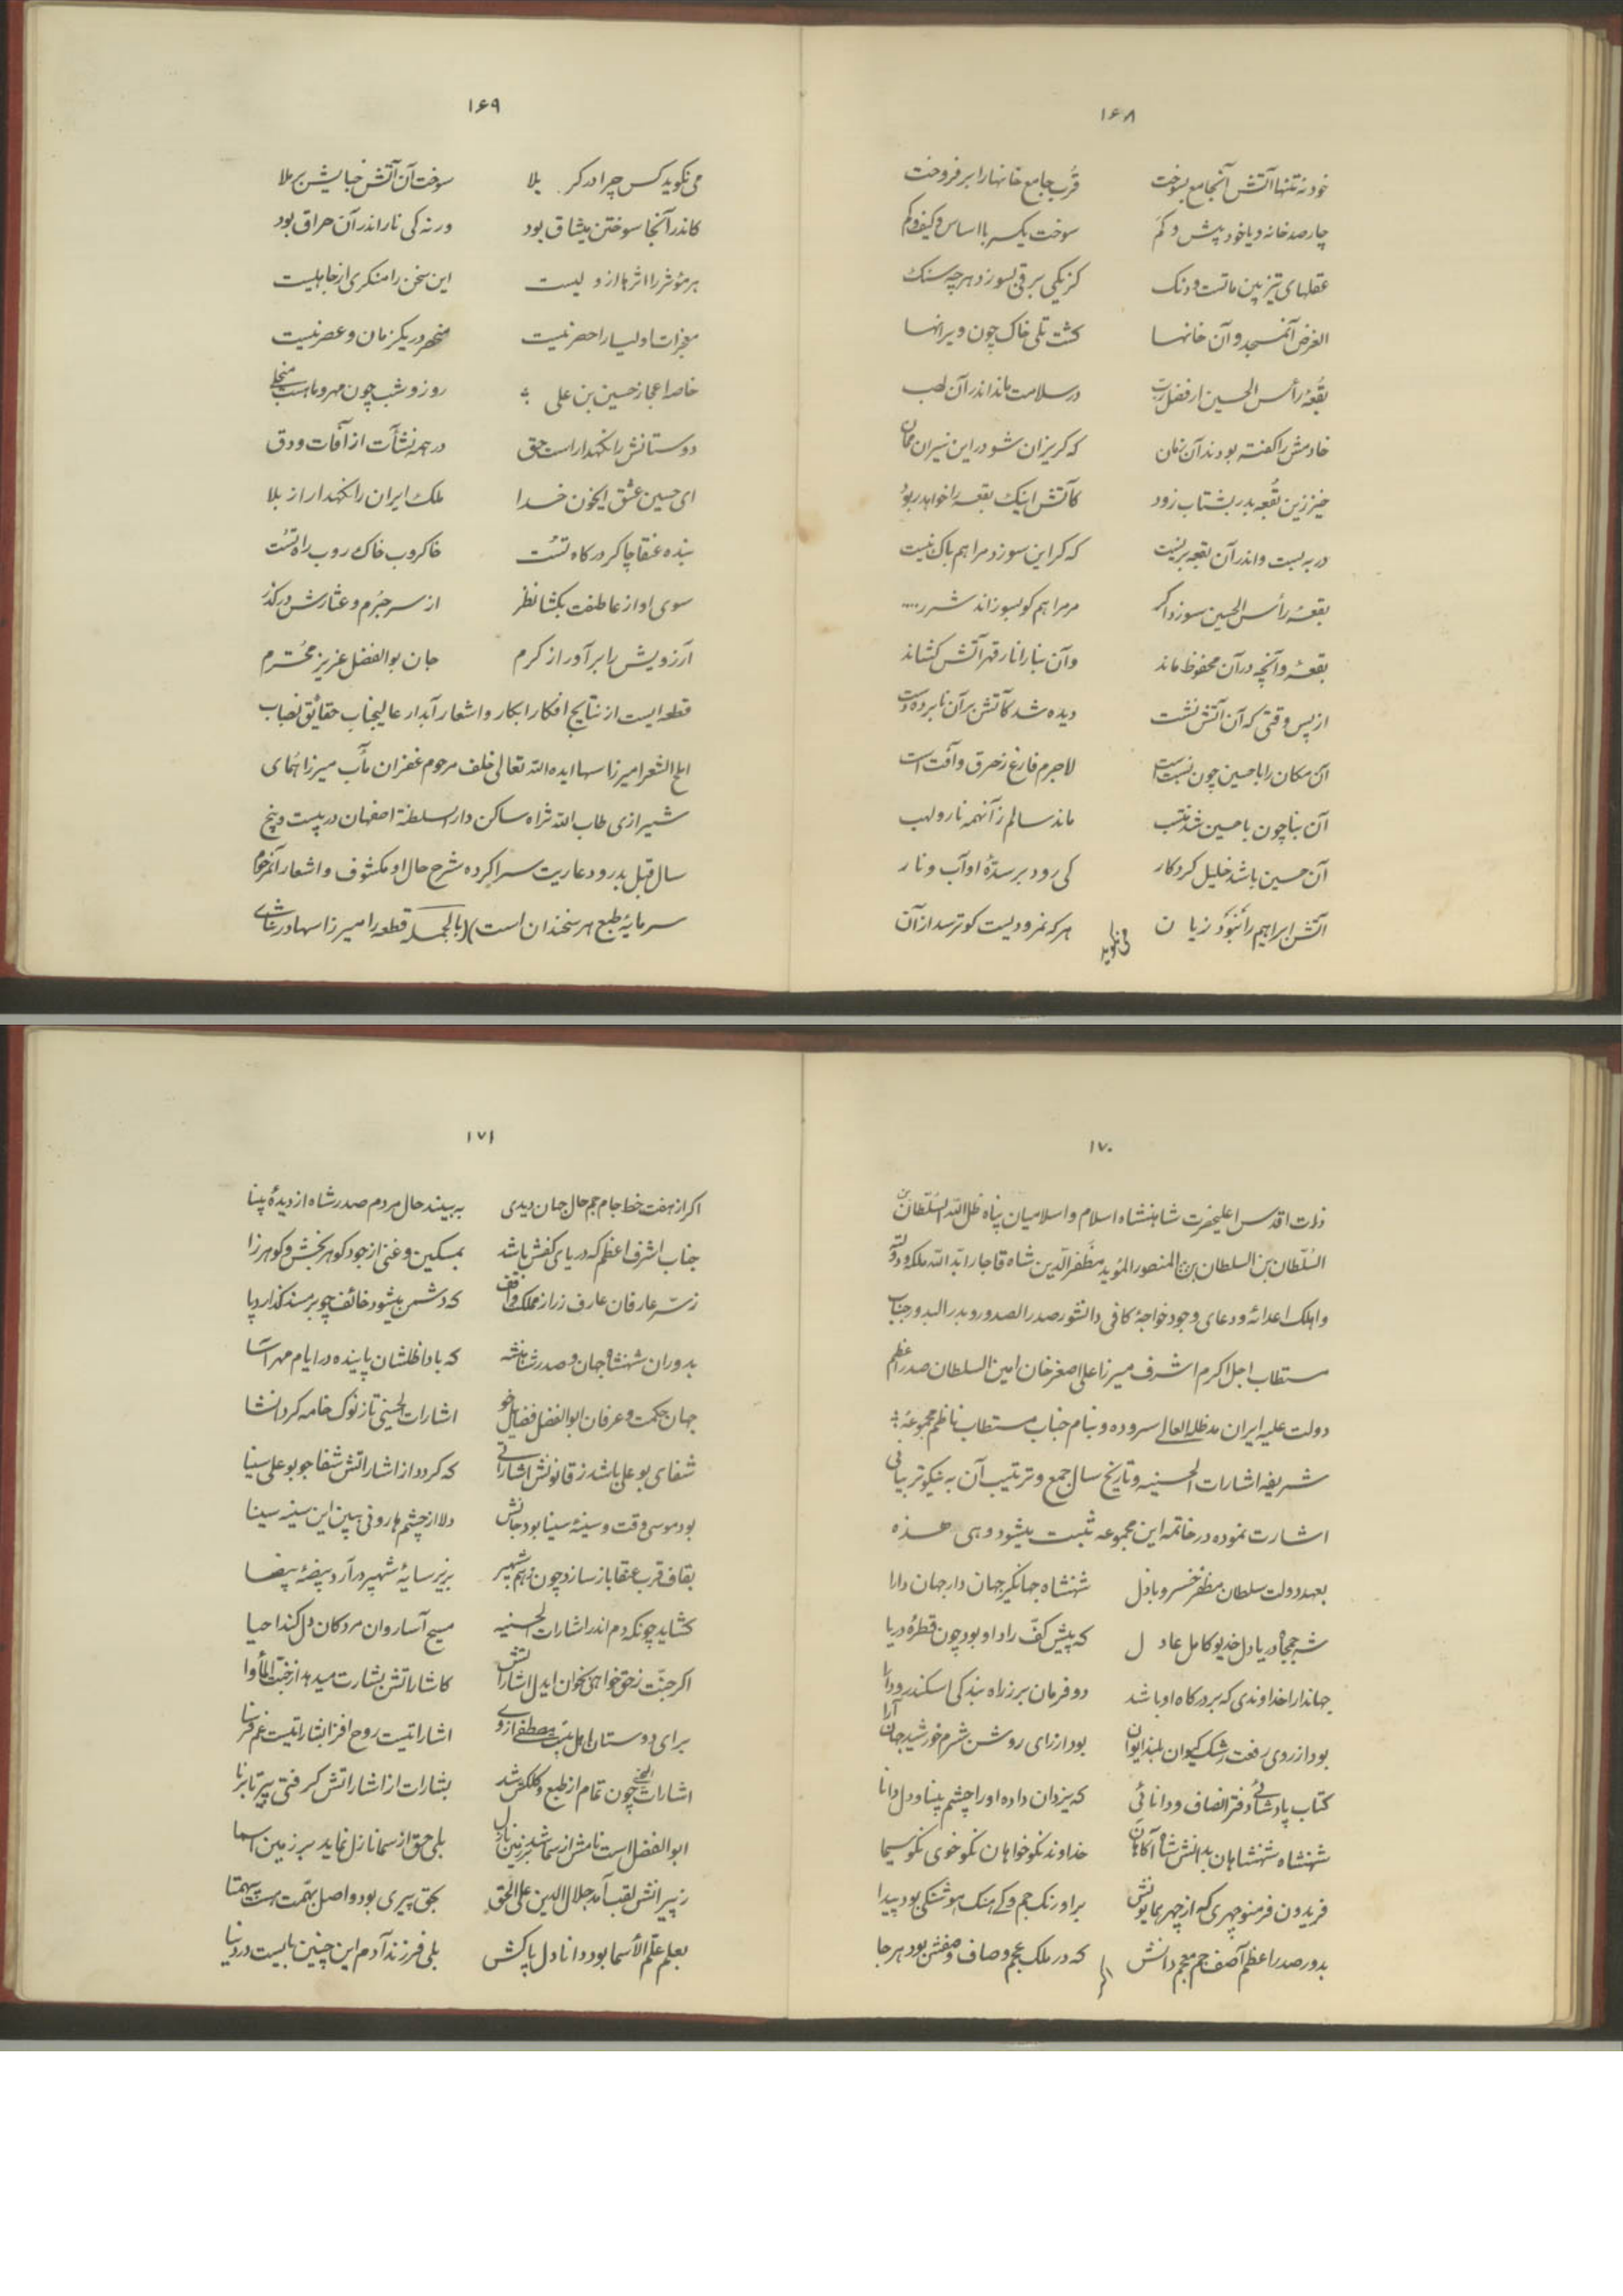 ۱۶۸
خود نه تنها آتش آنجامع بسوخت قُرب جامع خانها را برفروخت
چارصد خانه و یا خود پیش و کم سوخت یکسر با اساس و کیف و کم
عقلهای تیزبین مات و دنک کز یکی برقی بسوزد هر چه سنک
الغرض آنمسجد و آن خانها کشت تلی خاک چون ویرانها
بقعهٔ رأس الحسین از فضل رب در سلامت ماند اندر آن لهب
خادمش را کفته بودند آن زمان که کریزان شو در این نیران ممان
خیز زین بقعه بدر بشتاب زود کآتش اینک بقعه را خواهد ربود
در به بست و اندر آن بقعه بزیست که کر این سوزد مرا هم باک نیست
بقعهٔ رأس الحسین سوزد اکر مر مرا هم کو بسوزاند شرر
بقعه و آنچه در آن محفوظ ماند وآن بنا را نار قهر آتش کشاند
از پس وقتی که آن آتش نشست دیده شد کآتش بر آن نابرده دست
آن مکان را با حسین چون نسبت است لاجرم فارغ ز حرق و آفت است
آن بنا چون با حسین شد منتسب ماند سالم ز آنهمه نار و لهب
آن حسین باشد خلیل کردکار کی رود بر سدّهٔ او آب و نار
آتش ابراهیم را نَبْوَد زیان هر که نمرودیست کو ترسد از آن
می‌نکوید
۱۶۹
می نکوید کس چرا در کربلا سوخت آن آتش خبایش بر ملا
کاندر آنجا سوختن میثاق بود ور نه کی نار اندر آن حراق بود
هر مؤثر را اثرها از ولیست این سخن را منکری از جاهلیست
معجزات اولیا را حصر نیست منحصر در یکزمان و عصر نیست
خاصه اعجاز حسین بن علی روز و شب چون مهر و ماه است منجلی
دوستانش را نکهدار است حق در همه نشآت از آفات و دق
ای حسین عشق ایخون خدا ملک ایران را نکهدار از بلا
بنده عنقا چاکر درکاه تست خاکروب خاک روب راه تست
سوی او از عاطفت بکشا نظر از سر جُرم و عثارش درکذر
آرزویش را برآور از کرم جان بوالفضل عزیز محترم
قطعه ایست از نتایج افکار ابکار و اشعار آبدار عالیجناب حقائق نصاب
املح الشعرا میرزا سها ایده الله تعالی خلف مرحوم غفران مآب میرزا همای
شیرازی طاب الله ثراه ساکن دار السلطنة اصفهان در بیست و پنج
سال قبل بدرود عاریت سرا کرده شرح حال او مکشوف و اشعار آنمرحوم
سرمایهٔ طبع هر سخندان است) (بالجمله قطعه را میرزا سها در ثنای
۱۷۰
ذات اقدس اعلیحضرت شاهنشاه اسلام و اسلامیان پناه ظل الله السُلطان بن
السُلطان بن السلطان بن المنصور المؤید مظفر الدین شاه قاجار ابد الله ملکه و دولته
و اهلک اعدائه و دعای وجود خواجهٔ کافی دانشور صدر الصدور و بدر البدور جناب
مستطاب اجل اکرم اشرف میرزا علی اصغر خان امین السلطان صدر اعظم
دولت علیه ایران مد ظله العالی سروده و بنام جناب مستطاب ناظم مجموعهٔ
شریفه اشارات الحسینیه و تاریخ سال جمع و ترتیب آن به نیکوتر بیانی
اشارت نموده در خاتمه این مجموعه ثبت میشود و هی هذه
بعهد دولت سلطان مظفر خسرو باذل شهنشاه جهانکیر جهان دار جهان دارا
شه جمجاه دریا دل خدیو کامل عادل که پیش کفّ راد او بود چون قطرهٔ دریا
جهاندارا خداوندی که بر درکاه او باشد دو فرمان بر ز راه بندکی اسکندر و دارا
بود از روی رفعت رشک کیوان بلند ایوان بود از رای روشن شرم خورشید جهان آرا
کتاب پادشائی دفتر انصاف و دانائی که یزدان داده او را چشم بینا و دل دانا
شهنشاه شهنشاهان بدانش شاه آکاهان خداوند نکو خواهان نکو خوی نکو سیما
فریدون فر منوچهری که از چهر همایونش بر اورنک جم و کی هنک هوشنکی بود پیدا
بدور صدر اعظم آصف جم معجم دانش که در ملک عجم وصاف وصفش بود هر جا
اکر
۱۷۱
اکر از هفت خط جام جم حال جهان دیدی به بیند حال مردم صدر شاه از دیدهٔ بینا
جناب اشرف اعظم که دریای کفش باشد بمسکین و غنی از جود کوهر بخش و کوهر زا
ز سرّ عارفان عارف ز راز مملکت واقف که دشمن میشود خائف چو بر مسند کذارد پا
بدوران شهنشاه جهان و صدر شاهنشه که بادا ظلشان پاینده در ایام مهر آسا
جهان حکمت و عرفان ابوالفضل فضایل خو اشارات الحسینی تا ز نوک خامه کرد انشا
شفای بو علی باشد ز قانونش اشاراتی که کردد از اشاراتش شفا جو بو علی سینا
بود موسی وقت و سینهٔ سینا بود جانش دلا از چشم هارونی ببین این سینه سینا
بقاف قرب عنقا باز سازد چون ز هم شهپر بزیر سایهٔ شهپر در آرد بیضهٔ بیضا
کشاید چونکه دم اندر اشارات الحسینیه مسیح آسا روان مردکان دل کند احیا
اکر جنّت ز حق خواهی بخوان ایدل اشاراتش کاشاراتش بشارت میدهد از جنّت المأوا
برای دوستان اهل بیت مصطفی از وی اشاراتیست روح افزا بشاراتیست غم فرسا
اشارات الحسینی چون تمام از طبع و کلکش شد بشارات از اشاراتش کرفتی پیر تا برنا
ابوالفضل است نامش از سما شد بر زمین نازل بلی حق از سما نازل نماید بر زمین اسما
ز پیرانش لقب آمد جلال الدین علی الحق بحق پیری بود واصل بهمّت هست بیهمتا
بعلم علّم الأسما بود دانا دل پاکش بلی فرزند آدم این چنین بایست در دنیا